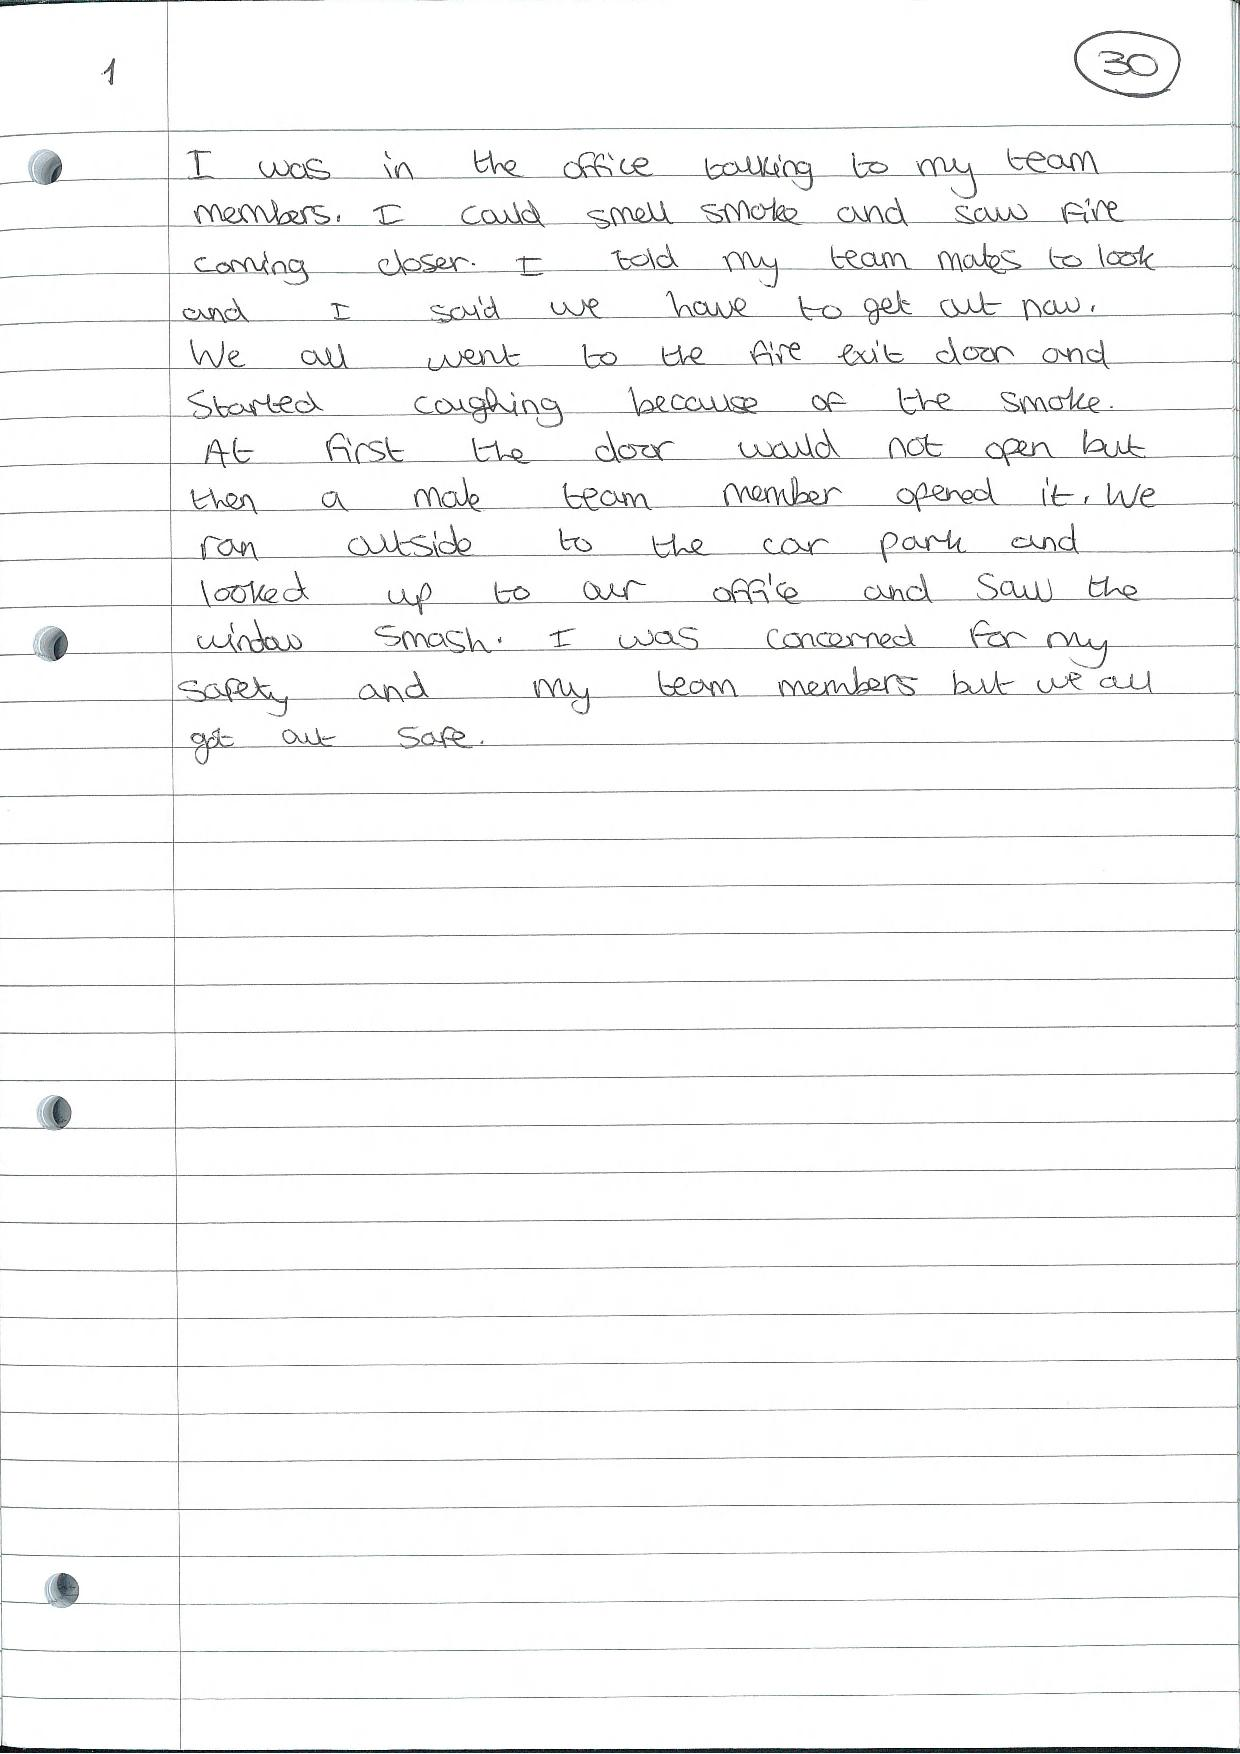 1
30
I was in the office talking to my team
members. I could smell smoke and saw fire
coming closer. I told my team mates to look
and I said we have to get out now.
We all went to the fire exit door and
Started coughing because of the smoke.
At first the door would not open but
then a male team member opened it. We
ran outside to the car park and
looked up to our office and saw the
window smash. I was concerned for my
safety and my team members but we all
got out safe.